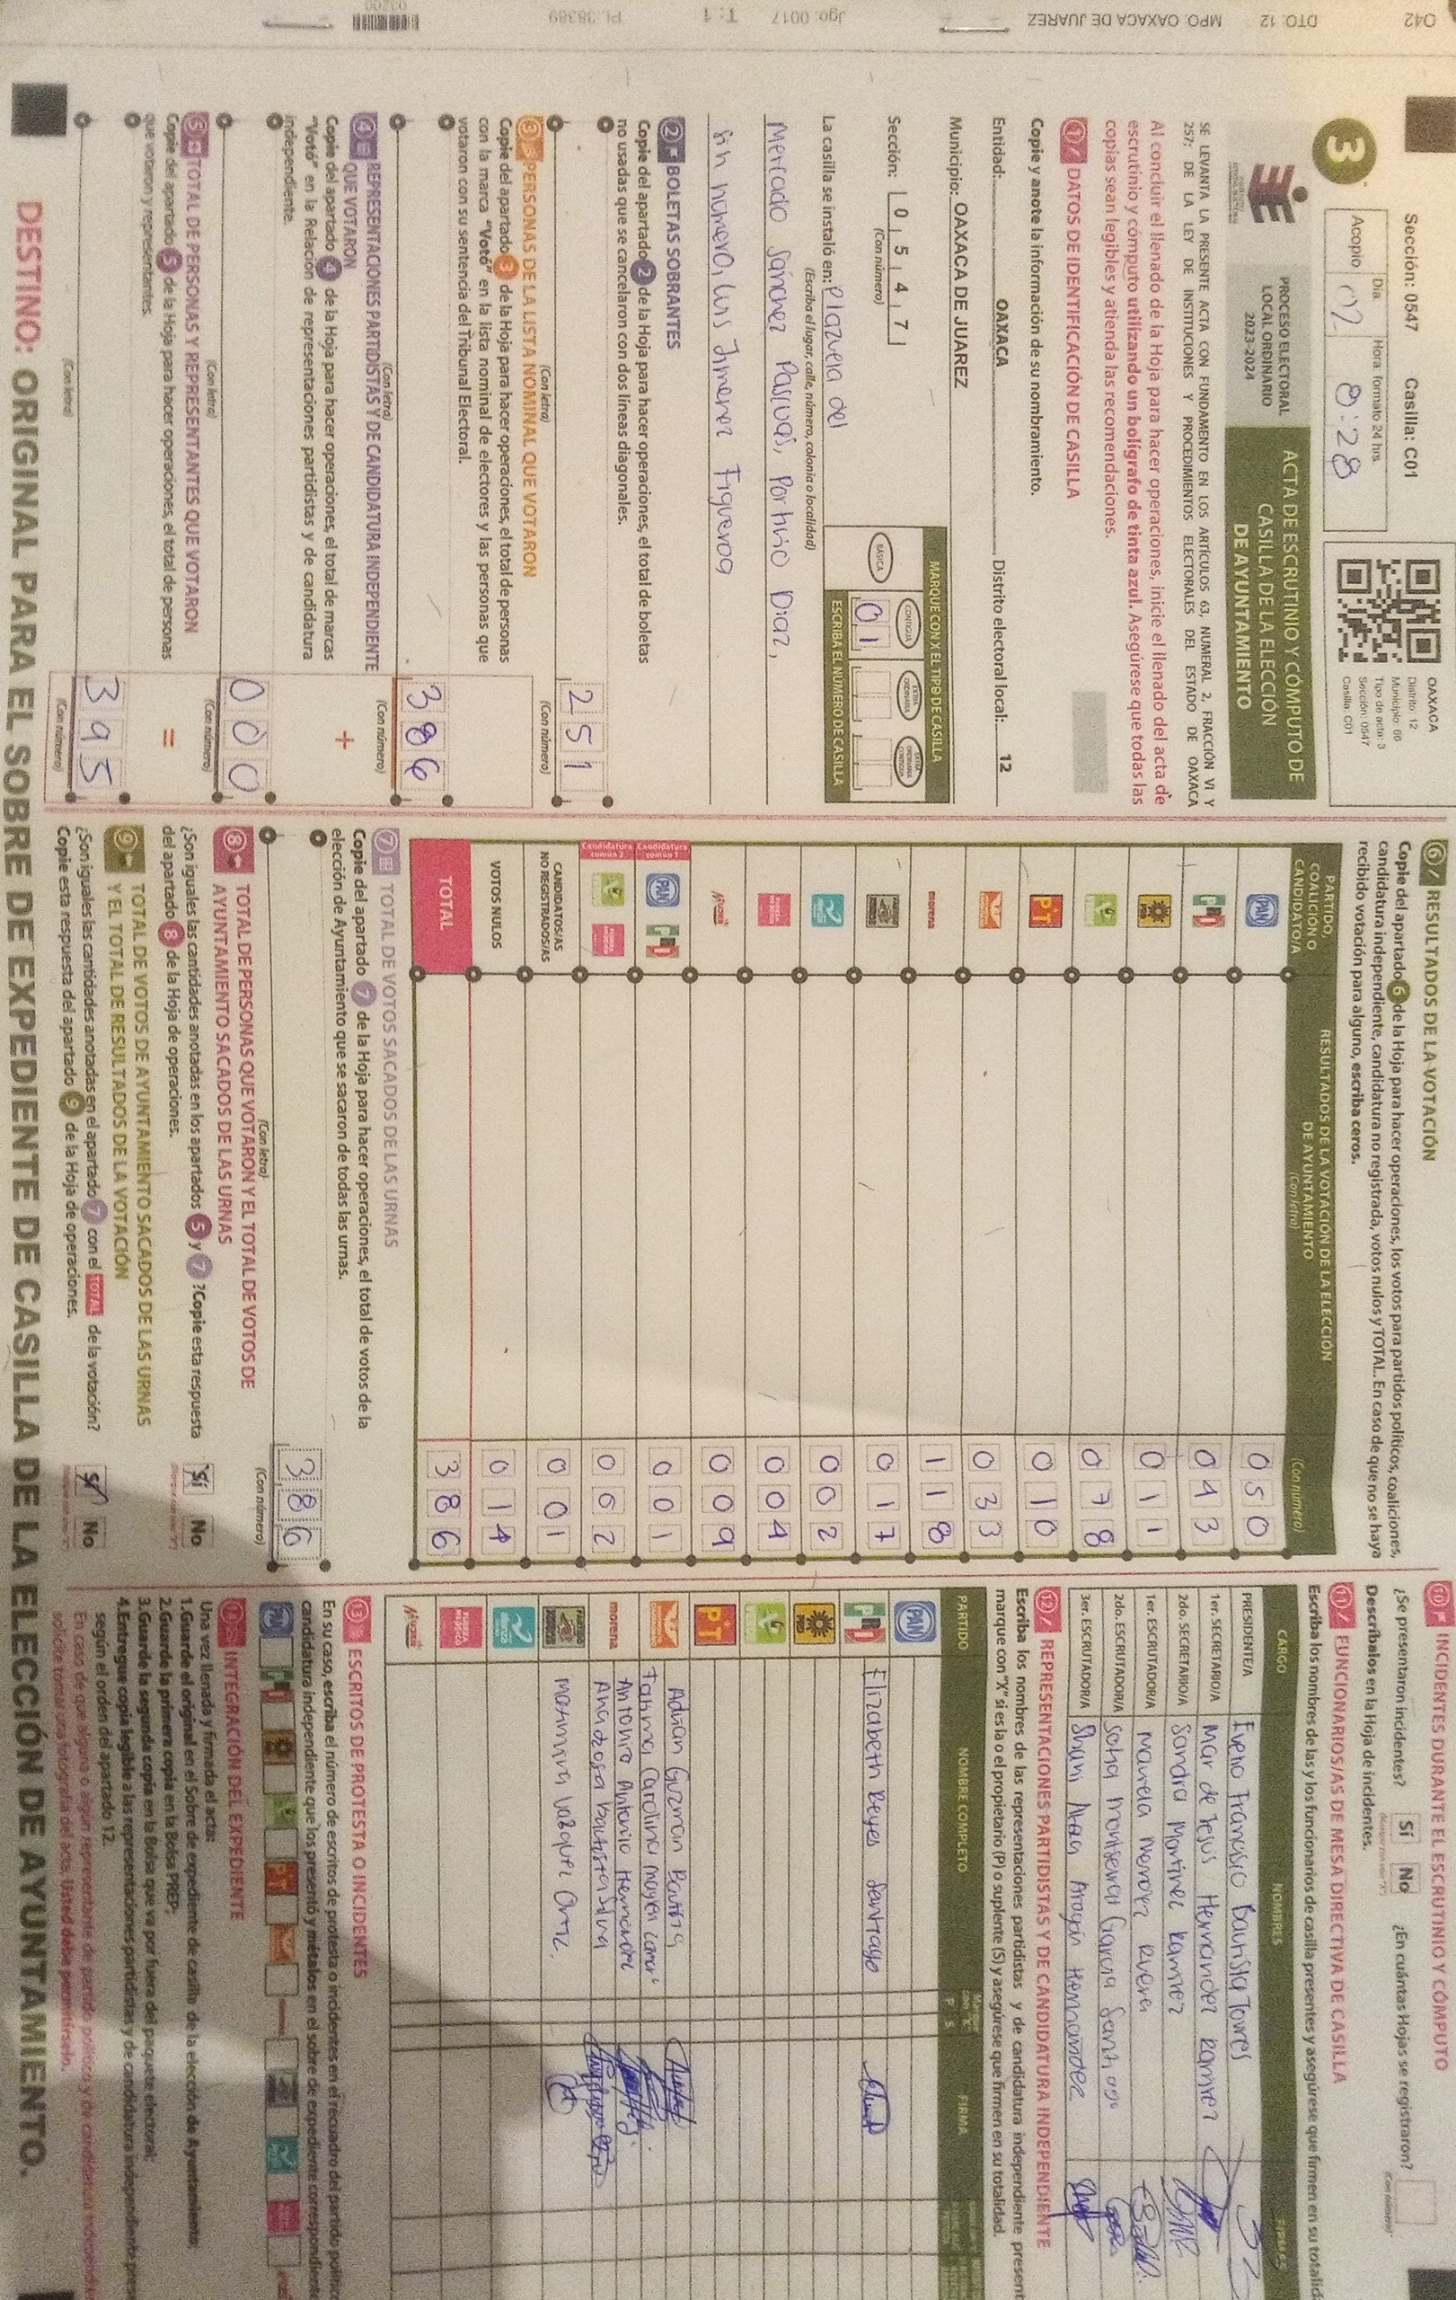 042 DTO: 12 MPO: OAXACA DE JUAREZ Jgo. 0017 T: 1 PL. 38389
Sección: 0547 Casilla: C01
Día: Hora: formato 24 hrs.
Acopio 02 8:28
OAXACA
Distrito: 12
Municipio: 66
Tipo de acta: 3
Sección: 0547
Casilla: C01
3
PROCESO ELECTORAL
LOCAL ORDINARIO
2023-2024
ACTA DE ESCRUTINIO Y CÓMPUTO DE
CASILLA DE LA ELECCIÓN
DE AYUNTAMIENTO
SE LEVANTA LA PRESENTE ACTA CON FUNDAMENTO EN LOS ARTÍCULOS 63, NUMERAL 2, FRACCIÓN VI Y
257; DE LA LEY DE INSTITUCIONES Y PROCEDIMIENTOS ELECTORALES DEL ESTADO DE OAXACA
Al concluir el llenado de la Hoja para hacer operaciones, inicie el llenado del acta de
escrutinio y cómputo utilizando un bolígrafo de tinta azul. Asegúrese que todas las
copias sean legibles y atienda las recomendaciones.
1 DATOS DE IDENTIFICACIÓN DE CASILLA
Copie y anote la información de su nombramiento.
Entidad: OAXACA Distrito electoral local: 12
Municipio: OAXACA DE JUAREZ
MARQUE CON X EL TIPO DE CASILLA
Sección: 0 5 4 7
(Con número)
BÁSICA CONTIGUA
01
ESCRIBA EL NÚMERO DE CASILLA
La casilla se instaló en: Plazuela del
(Escriba el lugar, calle, número, colonia o localidad)
Mercado Sánchez Pascuas, Porfirio Diaz,
sin numero, Luis Jimenez Figueroa
2 BOLETAS SOBRANTES
Copie del apartado 2 de la Hoja para hacer operaciones, el total de boletas
no usadas que se cancelaron con dos líneas diagonales.
251
(Con letra) (Con número)
3 PERSONAS DE LA LISTA NOMINAL QUE VOTARON
Copie del apartado 3 de la Hoja para hacer operaciones, el total de personas
con la marca "Votó" en la lista nominal de electores y las personas que
votaron con su sentencia del Tribunal Electoral.
386
(Con letra) (Con número)
4 REPRESENTACIONES PARTIDISTAS Y DE CANDIDATURA INDEPENDIENTE
QUE VOTARON
+
Copie del apartado 4 de la Hoja para hacer operaciones, el total de marcas
"Votó" en la Relación de representaciones partidistas y de candidatura
independiente.
000
(Con letra) (Con número)
5 TOTAL DE PERSONAS Y REPRESENTANTES QUE VOTARON
=
Copie del apartado 5 de la Hoja para hacer operaciones, el total de personas
que votaron y representantes.
395
(Con letra) (Con número)
6 RESULTADOS DE LA VOTACIÓN
Copie del apartado 6 de la Hoja para hacer operaciones, los votos para partidos políticos, coaliciones,
candidatura independiente, candidatura no registrada, votos nulos y TOTAL. En caso de que no se haya
recibido votación para alguno, escriba ceros.
PARTIDO,
COALICIÓN O
CANDIDATO/A
RESULTADOS DE LA VOTACIÓN DE LA ELECCIÓN
DE AYUNTAMIENTO
(Con letra) (Con número)
PAN 050
PRI 043
011
078
PT 010
033
morena 118
017
002
004
MUJER 009
Candidatura común 1 PAN PRI 001
Candidatura común 2 002
CANDIDATOS/AS
NO REGISTRADOS/AS 001
VOTOS NULOS 014
TOTAL 386
7 TOTAL DE VOTOS SACADOS DE LAS URNAS
Copie del apartado 7 de la Hoja para hacer operaciones, el total de votos de la
elección de Ayuntamiento que se sacaron de todas las urnas.
386
(Con letra) (Con número)
8 TOTAL DE PERSONAS QUE VOTARON Y EL TOTAL DE VOTOS DE
AYUNTAMIENTO SACADOS DE LAS URNAS
¿Son iguales las cantidades anotadas en los apartados 5 y 7 ?Copie esta respuesta
del apartado 8 de la Hoja de operaciones.
Sí No
9 TOTAL DE VOTOS DE AYUNTAMIENTO SACADOS DE LAS URNAS
Y EL TOTAL DE RESULTADOS DE LA VOTACIÓN
¿Son iguales las cantidades anotadas en el apartado 7 con el TOTAL de la votación?
Copie esta respuesta del apartado 9 de la Hoja de operaciones.
Sí No
10 INCIDENTES DURANTE EL ESCRUTINIO Y CÓMPUTO
¿Se presentaron incidentes? Sí No ¿En cuántas Hojas se registraron?
Descríbalos en la Hoja de incidentes.
11 FUNCIONARIOS/AS DE MESA DIRECTIVA DE CASILLA
Escriba los nombres de las y los funcionarios de casilla presentes y asegúrese que firmen en su totalid
CARGO NOMBRES FIRMAS
PRESIDENTE/A Evelio Francisco Bautista Torres
1er. SECRETARIO/A Mar de Jesus Hernandez Ramirez
2do. SECRETARIO/A Sandra Martinez Ramirez
1er. ESCRUTADOR/A
2do. ESCRUTADOR/A Sofia Montserrat Garcia Santiago
3er. ESCRUTADOR/A Aragón Hernández
12 REPRESENTACIONES PARTIDISTAS Y DE CANDIDATURA INDEPENDIENTE
Escriba los nombres de las representaciones partidistas y de candidatura independiente present
marque con "X" si es la o el propietario (P) o suplente (S) y asegúrese que firmen en su totalidad.
PARTIDO NOMBRE COMPLETO P S FIRMA
PAN
PRI Elizabeth Reyes Santiago
PT
Adrian Guzmán Bautista
Fatima Carolina Mayen
morena Antonio Antonio Hernandez
Ana Rosa Bautista Silva
Vasquez
MUJER
13 ESCRITOS DE PROTESTA O INCIDENTES
En su caso, escriba el número de escritos de protesta o incidentes en el recuadro del partido político
candidatura independiente que los presentó y métalos en el sobre de expediente correspondiente
14 INTEGRACIÓN DEL EXPEDIENTE
Una vez llenada y firmada el acta:
1.Guarde el original en el Sobre de expediente de casilla de la elección de Ayuntamiento;
2.Guarde la primera copia en la Bolsa PREP;
3.Guarde la segunda copia en la Bolsa que va por fuera del paquete electoral;
4.Entregue copia legible a las representaciones partidistas y de candidatura independiente prese
según el orden del apartado 12.
En caso de que alguna o algún representante de partido político y de candidatura independie
solicite tomar una fotografía del acta, Usted debe permitírselo.
DESTINO: ORIGINAL PARA EL SOBRE DE EXPEDIENTE DE CASILLA DE LA ELECCIÓN DE AYUNTAMIENTO.